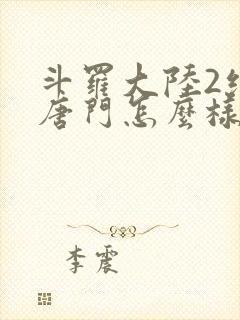 斗羅大陸2
唐門怎麼樣
李震